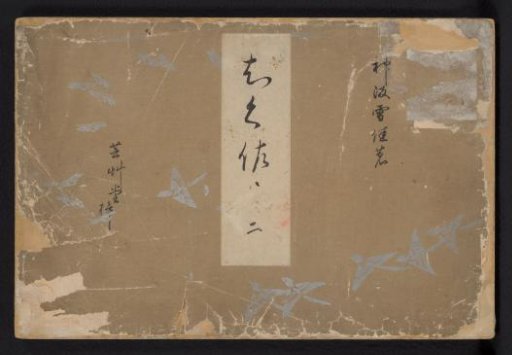 神坂雪佳著
ちく佐 二
芸艸堂